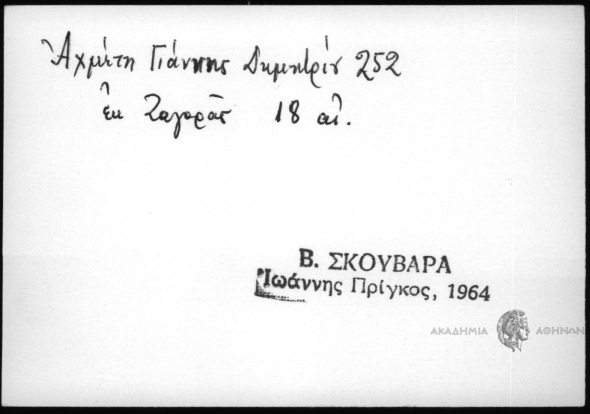 Ἀχμέτη Γιάννης Δημητρίου 252
ἐκ Ζαγορᾶς 18 αἰ.
Β. ΣΚΟΥΒΑΡΑ
Ἰωάννης Πρίγκος, 1964
ΑΚΑΔΗΜΙΑ ΑΘΗΝΩΝ